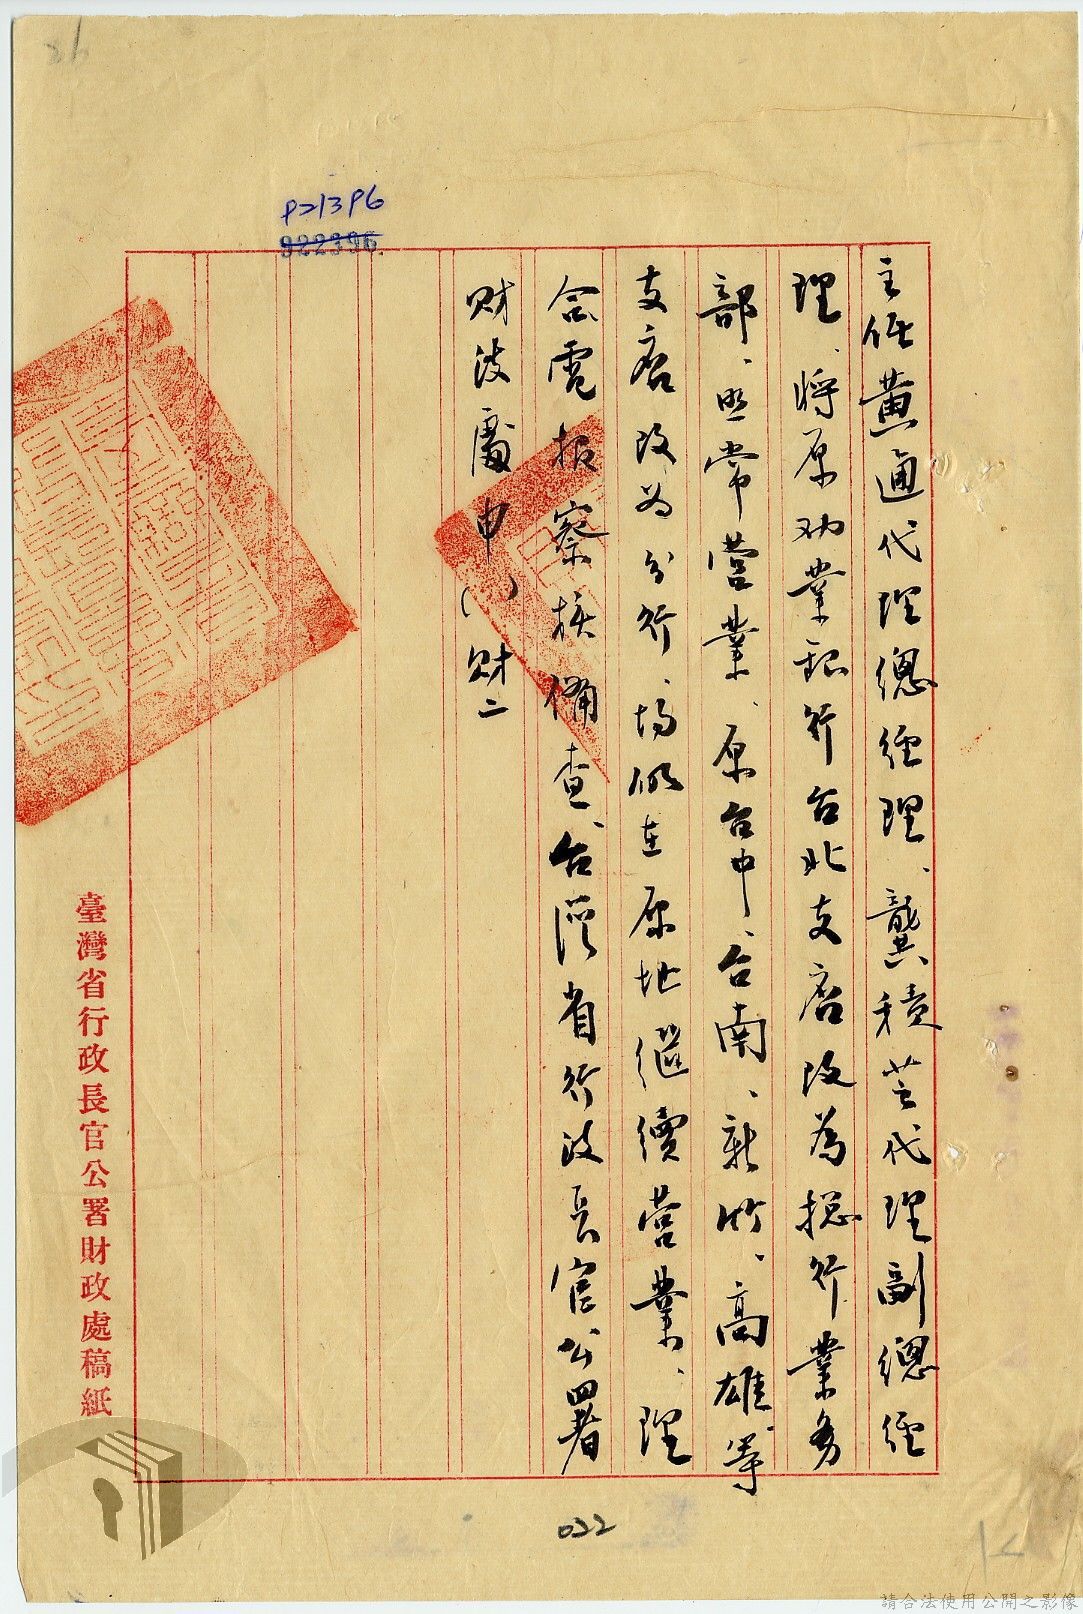 主任黃通代理總經理、龔積芝代理副總經
理、將原劝業銀行台北支店改為総行業务
部、照常營業、原台中、台南、新竹、高雄等
支店改为分行、均仍在原地繼續營業、理
合電报察核備查、台灣省行政長官公署
財政處申( )財二
臺灣省行政長官公署財政處稿紙
P21396
922396
022
請合法使用公開之影像